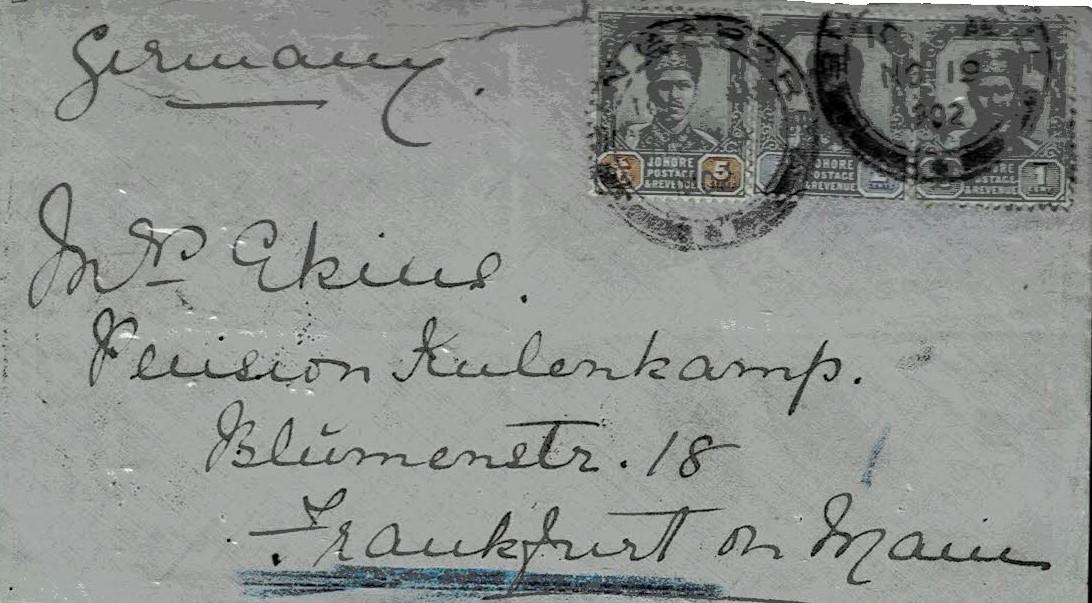 Germany.
JOHORE
POSTAGE
& REVENUE
5
JOHORE
POSTAGE
& REVENUE
CENTS
JOHORE
POSTAGE
& REVENUE
1
CENT
NO 19
902
Mrs Ekins.
Pension Kulenkamp.
Blumenstr. 18
Frankfurt on Main